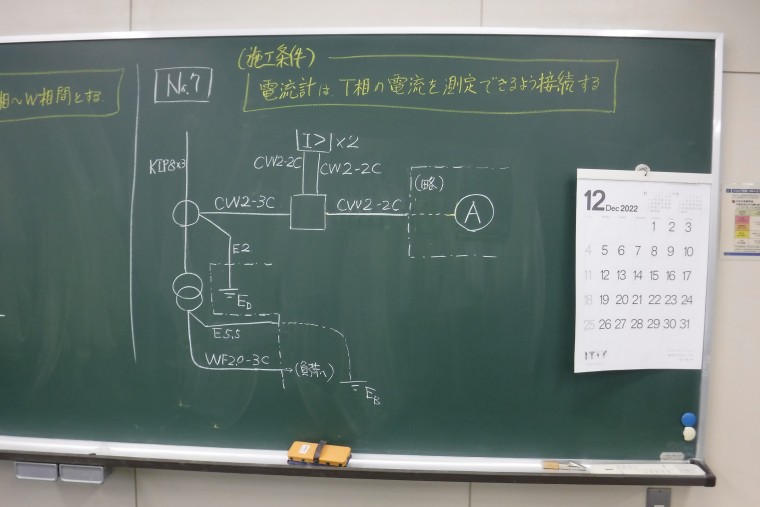 相〜W相間とする.
No.7
(施工条件)
電流計は、T相の電流を測定できるよう接続する
KIP8×3
I> ×2
CW2-2C
CW2-2C
CW2-3C
CW2-2C
(略)
A
E2
ED
E5.5
WF2.0-3C
(負荷へ)
EB
12 Dec 2022
1 2 3
4 5 6 7 8 9 10
11 12 13 14 15 16 17
18 19 20 21 22 23 24
25 26 27 28 29 30 31